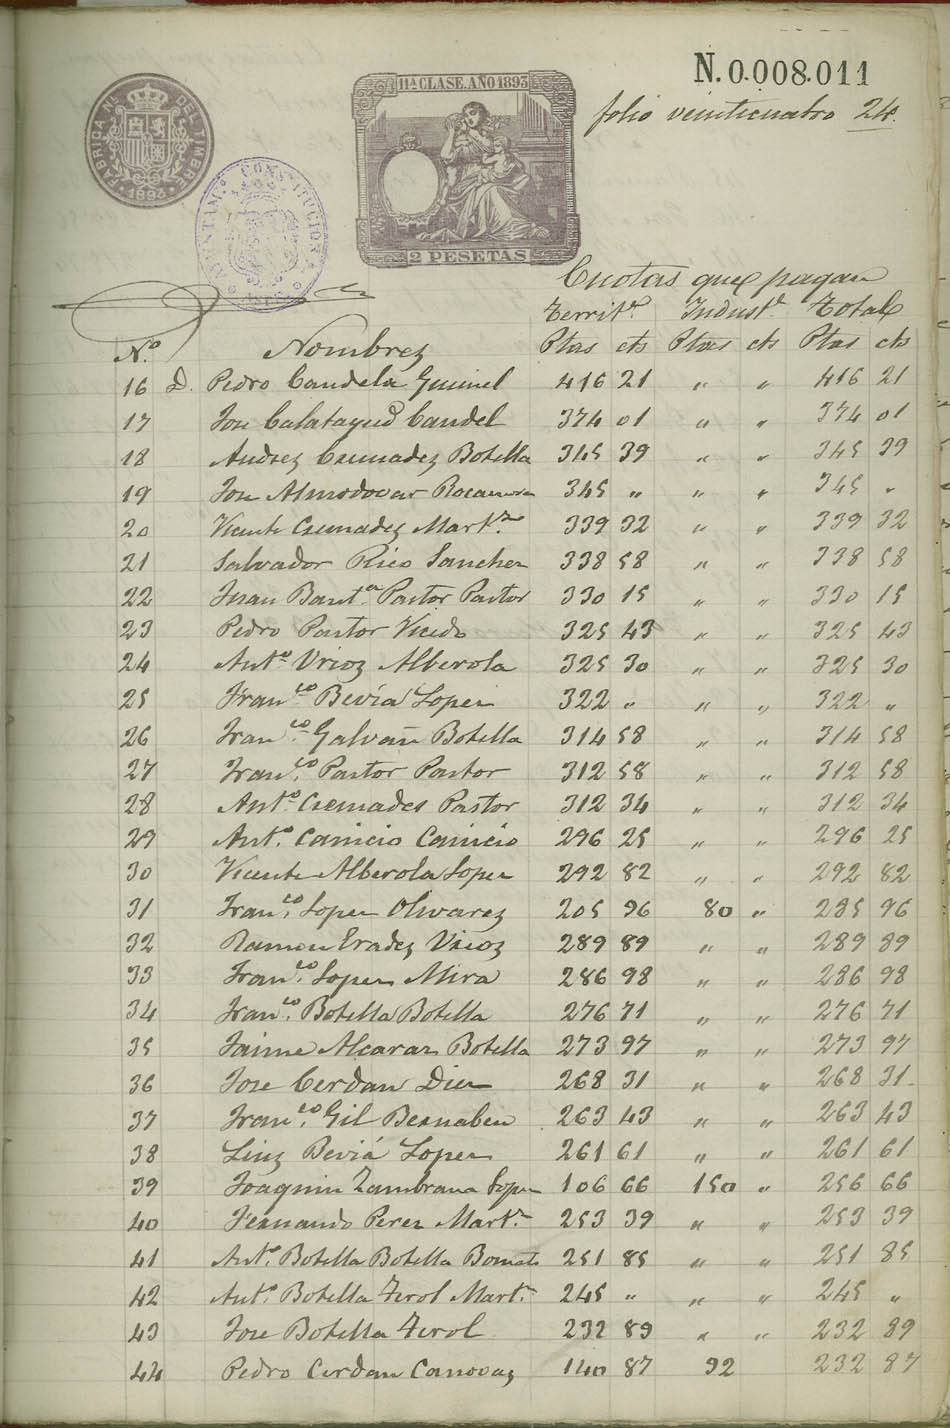 N.0.008.011
11ª CLASE. AÑO 1893
FABRICA Nal DEL TIMBRE
1893
folio veinticuatro 24.
AYUNTAM.º CONSTITUCIONAL
2 PESETAS
Cuotas que pagan
Territ.l Indust.l Total
N.º Nombres Ptas cts Ptas cts Ptas cts
16 D. Pedro Candela Guimel 416 21 " " 416 21
17 Jose Calatayud Candel 374 01 " " 374 01
18 Andrez Cremadez Botella 345 39 " " 345 39
19 Jose Almodovar Rocamora 345 " " " 345 "
20 Vicente Cremadez Mart.z 339 32 " " 339 32
21 Salvador Rico Sanchez 338 58 " " 338 58
22 Juan Baut.a Pastor Pastor 330 15 " " 330 15
23 Pedro Pastor Vicedo 325 43 " " 325 43
24 Ant.º Vrioz Alberola 325 30 " " 325 30
25 Fran.co Beviá Lopez 322 " " " 322 "
26 Fran.co Galvañ Botella 314 58 " " 314 58
27 Fran.co Pastor Pastor 312 58 " " 312 58
28 Ant.º Cremades Pastor 312 34 " " 312 34
29 Ant.º Canicio Canicio 296 25 " " 296 25
30 Vicente Alberola Lopez 292 82 " " 292 82
31 Fran.co Lopez Olivarez 205 96 80 " 285 96
32 Ramon Eradez Vrioz 289 89 " " 289 89
33 Fran.co Lopez Mira 286 98 " " 286 98
34 Fran.co Botella Botella 276 71 " " 276 71
35 Jaime Alcaraz Botella 273 97 " " 273 97
36 Jose Cerdan Diez 268 31 " " 268 31
37 Fran.co Gil Bernabeu 263 43 " " 263 43
38 Luiz Beviá Lopez 261 61 " " 261 61
39 Joaquin Zambrana Lopez 106 66 150 " 256 66
40 Fernando Perez Mart.z 253 39 " " 253 39
41 Ant.º Botella Botella 251 85 " " 251 85
42 Ant.º Botella Ferol Mart.z 245 " " " 245 "
43 Jose Botella Ferol 232 89 " " 232 89
44 Pedro Cerdan Canovaz 140 87 92 232 87